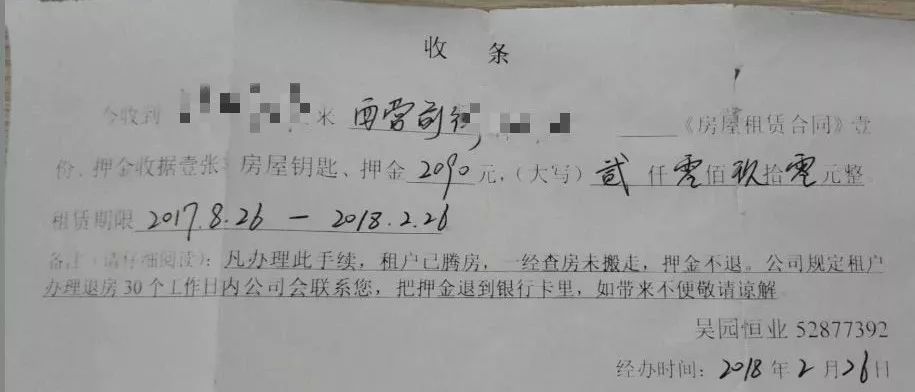 收 条
今收到 米 西营前街, 《房屋租赁合同》壹
份、押金收据壹张、房屋钥匙、押金 2090 元,(大写) 贰 仟 零 佰 玖 拾 零 元整
租赁期限 2017.8.26 — 2018.2.26
备注(请仔细阅读):凡办理此手续,租户已腾房,一经查房未搬走,押金不退。公司规定租户
办理退房30个工作日内公司会联系您,把押金退到银行卡里,如带来不便敬请谅解
吴园恒业 52877392
经办时间:2018 年 2 月 26 日